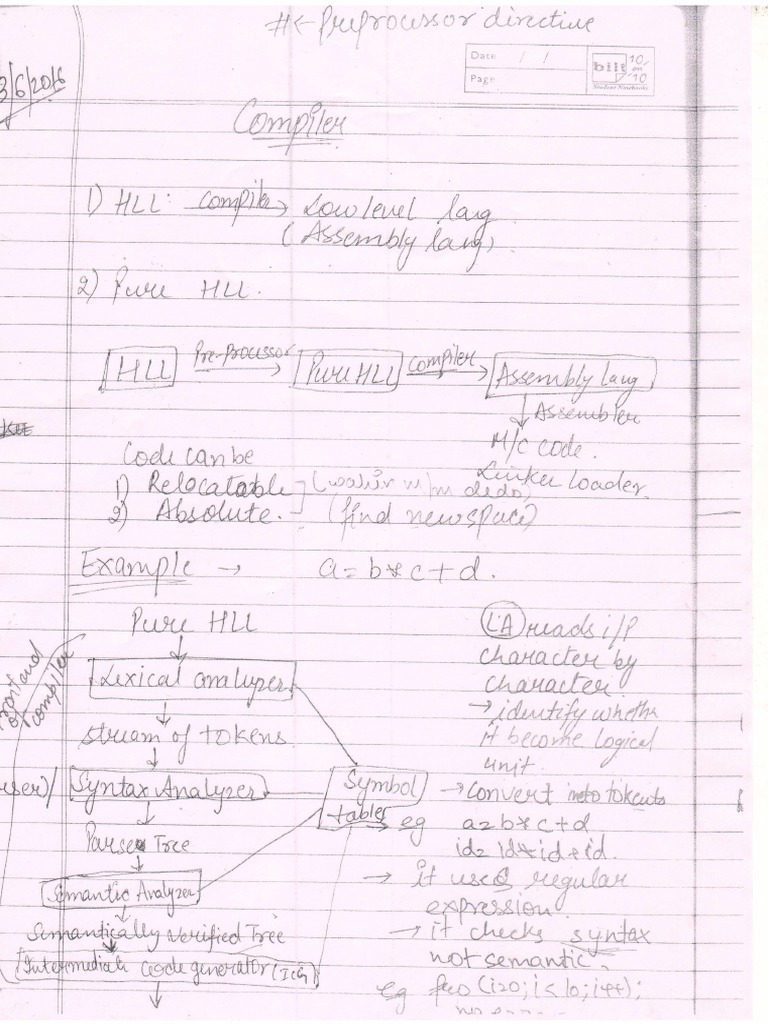 #← Preprocessor directive
Date / /
Page
bilt 10 on 10
Student Notebooks
3/6/2016
Compiler
1) HLL: compiler→ Low level lang
(Assembly lang)
2) Pure HLL.
HLL Pre-processor→ Pure HLL compiler→ Assembly lang
↓ Assembler
M/C code.
Linker Loader.
Code can be
1) Relocatable
2) Absolute. (find new space)
Example → a = b * c + d.
Pure HLL
↓
Lexical analyzer
↓
stream of tokens
↓
Syntax Analyzer
↓
Parse Tree
↓
Semantic Analyzer
↓
Semantically Verified Tree
↓
Intermediate code generator (ICG)
↓
Symbol
table
compiler
(LA) reads i/p
character by
character.
→ identify whether
it become logical
unit.
→ convert into tokens
→ eg a=b*c+d
id= id*id+id.
→ it uses regular
expression.
→ it checks syntax
not semantic.
eg (i=0; i<10; i++);